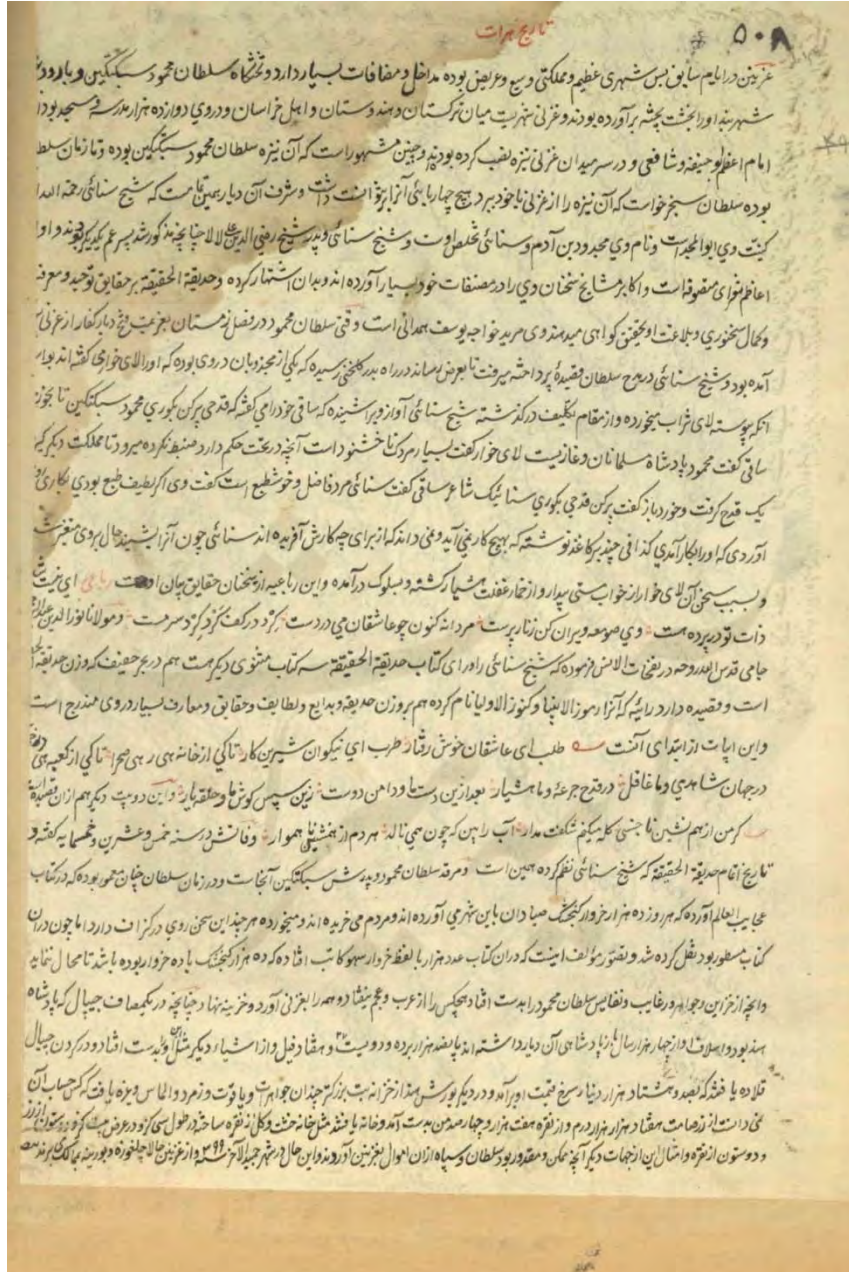 ٥٠٨
تاریخ هرات
غزنین در ایام سابق بس شهری عظیم و مملکتی وسیع و عریض بوده مداخل و مضافات بسیار دارد و تختگاه سلطان محمود سبکتکین و بارو
شهر بند او را بخشت پخته برآورده بودند و غزنی شهریست میان ترکستان و هندوستان و اهل خراسان و در وی دوازده هزار مدرسه و مسجد بود
امام اعظم ابوحنیفه و شافعی و در سر میدان غزنی نیزه نصب کرده بودند و چنین مشهور است که آن نیزه سلطان محمود سبکتکین بوده و تا زمان سلطا
بوده سلطان سنجر خواست که آن نیزه را از غزنی با خود ببرد هیچ چهارپایی آنرا برنتوانست داشت و شرف آن دیار بهمین تمامست که شیخ سنائی رحمة الله
کنیت وی ابوالمجد است و نام وی مجدود بن آدم و سنائی تخلص اوست و شیخ سنائی و پدر شیخ رضی الدین علی لالا چنانچه مذکور شد پسر عم یکدیگر بودند و او از
اعاظم شعرای متصوفه است و اکابر مشایخ سخنان وی را در مصنفات خود بسیار آورده اند و بدان استشهاد کرده و حدیقة الحقیقه بر حقایق توحید و معرفت
و کمال سخنوری و بلاغت او بتحقیق گواهی میدهند وی مرید خواجه یوسف همدانی است وقتی سلطان محمود در فصل زمستان بعزیمت فتح دیار کفار از غزنی
آمده بود و شیخ سنائی در مدح سلطان قصیدهٔ پرداخته میرفت تا بعرض رساند در راه بدر گلخنی رسیده که یکی از مجذوبان در وی بوده که او را لای خوار می گفته اند
آنکه پیوسته لای شراب میخورده و از مقام تکلیف در گذشته شیخ سنائی آواز ویرا شنیده که ساقی خود را می گفته که قدحی پر کن بکوری محمود سبکتکین تا بخورم
ساقی گفت محمود پادشاه مسلمانان و غازیست لای خوار گفت بسیار مردک ناخشنود است آنچه در تحت حکم دارد ضبط نکرده میرود تا مملکت دیگر گیرد
یک قدح گرفت و خورد باز گفت پر کن قدحی بکوری سنائیک شاعر ساقی گفت سنائی مرد فاضل و خوش طبع است گفت وی اگر لطیف طبع بودی بکاری
آوردی که او را بکار آمدی گزافی چند بر کاغذ نوشته که بهیچ کار نمی آید و نمی داند که از برای چه کارش آفریده اند سنائی چون آنرا بشنید حال بر وی متغیر گشت
و بسبب سخن آن لای خوار از خواب مستی بیدار و از خمار غفلت هشیار گشته و بسلوک درآمده و این رباعیه از سخنان حقایق بیان اوست رباعی ای نیست شد
ذات تو در پرده هست وی صومعه ویران کن زنار پرست مردانه کنون چو عاشقان می در دست گرد در کفر گرد و گرد سر مست و مولانا نورالدین عبدالرحمن
جامی قدس الله روحه در نفحات الانس فرموده که شیخ سنائی را ورای کتاب حدیقة الحقیقه سه کتاب مثنوی دیگر هست هم در بحر خفیف که وزن حدیقة
است و قصیده دارد رائیه که آنرا رموز الانبیا و کنوز الاولیا نام کرده هم بر وزن حدیقه و بدایع و لطایف و حقایق و معارف بسیار در وی مندرج است
و این ابیات از ابتدای آنست طلب ای عاشقان خوش رفتار طرب ای نیکوان شیرین کار تا کی از خانه هی ره صحرا تا کی از کعبه هی در
در جهان شاهدی و ما غافل در قدح جرعهٔ و ما هشیار بعد ازین دست ما و دامن دوست زین سپس گوش ما و حلقهٔ یار و این دو بیت دیگر هم از آن قصیده است
گر من از هم نشین ناجنسی گله میکنم شگفت مدار آب را بین که چون همی نالد هر دم از همنشین ناهموار وفاتش در سنه خمس و عشرین و خمسمایه گفته و
تاریخ اتمام حدیقة الحقیقه که شیخ سنائی نظم کرده همین است و مرقد سلطان محمود و پدرش سبکتکین آنجاست و در زمان سلطان چنان معمور بوده که در کتاب
عجایب العالم آورده که هر روز ده هزار خروار گنجشک صیادان باین شهر می آورده اند و مردم می خریده اند و میخورده هر چند این سخن روی در گزاف دارد اما چون در آن
کتاب مسطور بود نقل کرده شد و تصور مؤلف اینست که در آن کتاب عدد هزار با لفظ خروار سهو کاتب افتاده که ده هزار گنجشک یا ده خروار بوده باشد تا محال ننماید
و آنچه از خزاین و جواهر و رغایب و نفایس سلطان محمود را بدست افتاد هیچکس را از عرب و عجم نیفتاد و همه را بغزنی آورد و خزینه نهاد چنانچه در یک مصاف جیپال که پادشاه
هند بود و اسلاف او از چهار هزار سال باز پادشاهی آن دیار داشته اند پانصد هزار برده و دویست و هفتاد فیل و از اشیاء دیگر مثل این بدست افتاد و در گردن جیپال
قلاده یافتند که نهصد و هشتاد هزار دینار سرخ قیمت او برآمد و در دیگر یورش هند از خزانه بت بزرگتر چندان جواهرات و یاقوت و زمرد و الماس ویزه یافت که کس حساب آن
نمی دانست از زر صامت هفتاد هزار هزار درم و از نقره هفت هزار و چهارصد من بدست آمد و خانه یافتند مثل خانه خشت و گل از نقره ساخته در طول سی گز و در عرض بیست گز و دو ستون از زر
و دو ستون از نقره و امثال این از جهات دیگر آنچه ممکن و مقدور بود سلطان و سپاه از آن اموال بغزنین آوردند و این حال در شهر جمیدی الآخر سنه ٣٩٩ و از غزنین حالا چلغوزه و بورینه بممالک می برند